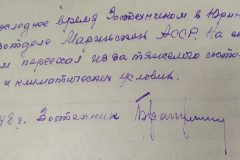 последнее время Зоотехником в Юрин
зоотдела Марийской АССР. На
м переехал из за тяжелого
и климатических условия.
48 г. Зоотехник